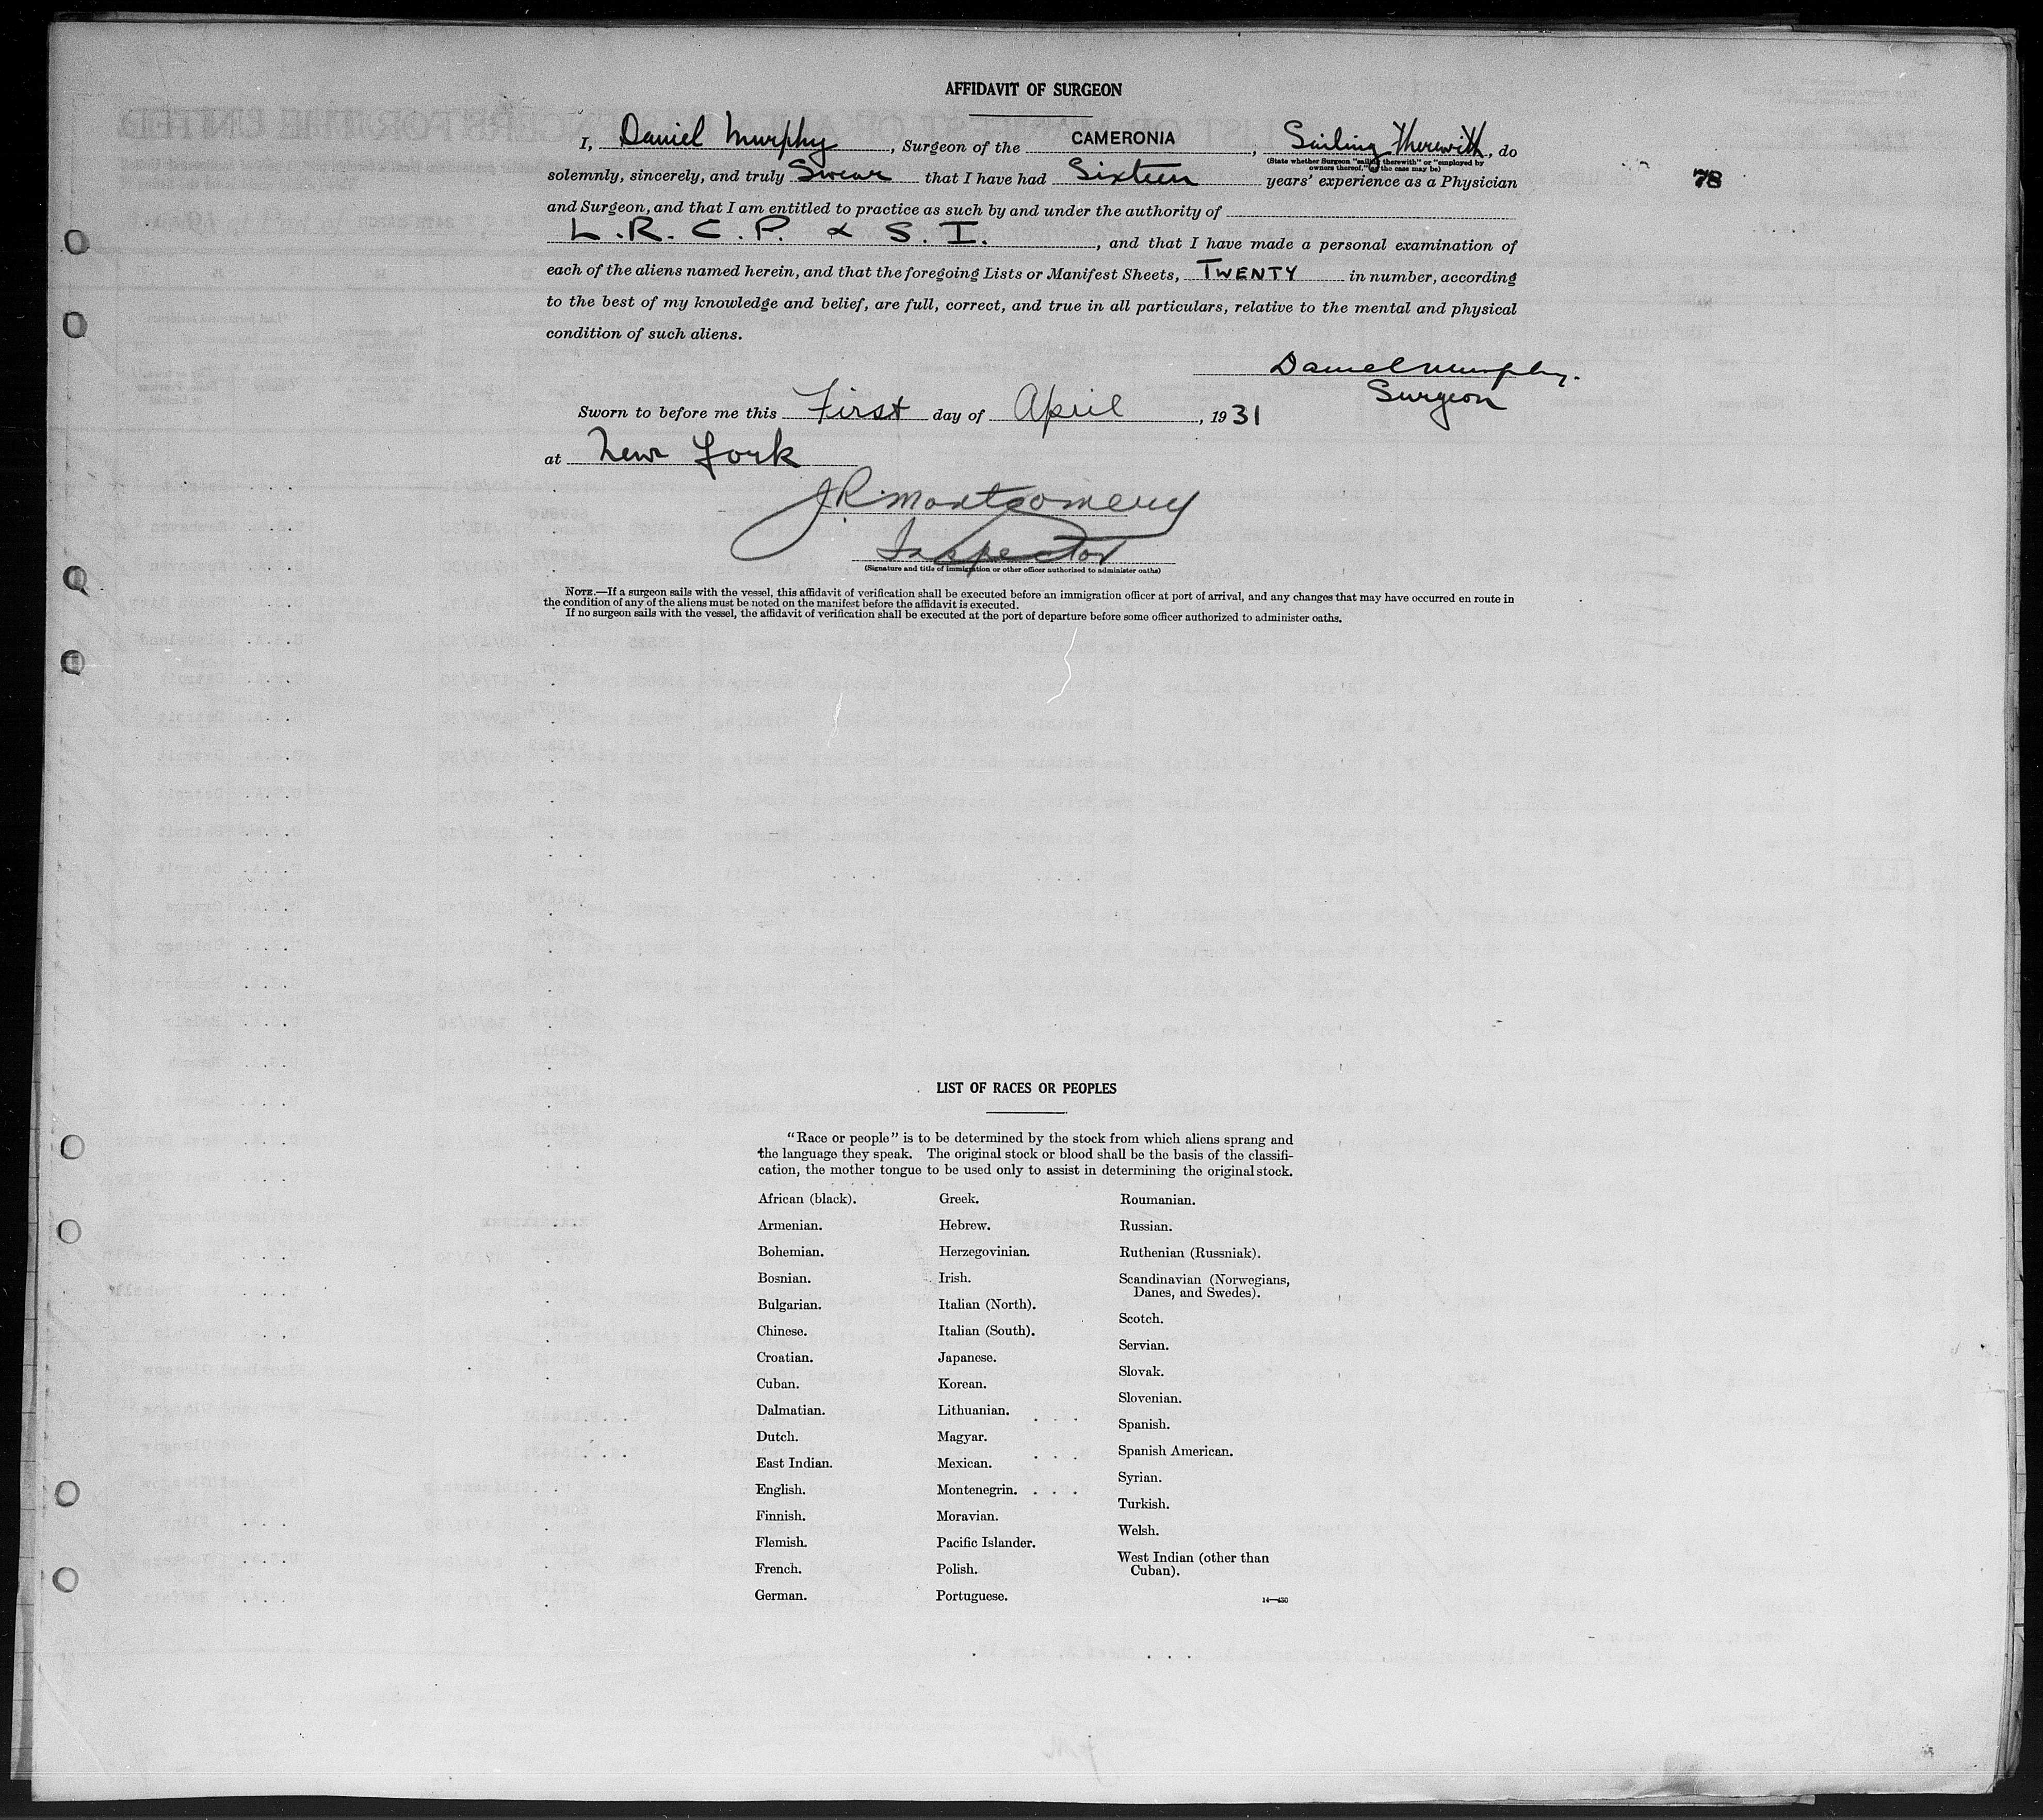 AFFIDAVIT OF SURGEON
I, Daniel Murphy, Surgeon of the CAMERONIA, Sailing therewith, do
(State whether Surgeon "sailing therewith" or "employed by
owners thereof," as the case may be)
solemnly, sincerely, and truly Swear that I have had Sixteen years' experience as a Physician
78
and Surgeon, and that I am entitled to practice as such by and under the authority of
L.R.C.P. & S.I., and that I have made a personal examination of
each of the aliens named herein, and that the foregoing Lists or Manifest Sheets, TWENTY in number, according
to the best of my knowledge and belief, are full, correct, and true in all particulars, relative to the mental and physical
condition of such aliens.
Daniel Murphy.
Surgeon
Sworn to before me this First day of April, 1931
at New York
J.R. Montgomery
Inspector
(Signature and title of immigration or other officer authorized to administer oaths)
NOTE.—If a surgeon sails with the vessel, this affidavit of verification shall be executed before an immigration officer at port of arrival, and any changes that may have occurred en route in
the condition of any of the aliens must be noted on the manifest before the affidavit is executed.
If no surgeon sails with the vessel, the affidavit of verification shall be executed at the port of departure before some officer authorized to administer oaths.
LIST OF RACES OR PEOPLES
"Race or people" is to be determined by the stock from which aliens sprang and
the language they speak. The original stock or blood shall be the basis of the classifi-
cation, the mother tongue to be used only to assist in determining the original stock.
African (black).
Armenian.
Bohemian.
Bosnian.
Bulgarian.
Chinese.
Croatian.
Cuban.
Dalmatian.
Dutch.
East Indian.
English.
Finnish.
Flemish.
French.
German.
Greek.
Hebrew.
Herzegovinian.
Irish.
Italian (North).
Italian (South).
Japanese.
Korean.
Lithuanian.
Magyar.
Mexican.
Montenegrin.
Moravian.
Pacific Islander.
Polish.
Portuguese.
Roumanian.
Russian.
Ruthenian (Russniak).
Scandinavian (Norwegians,
Danes, and Swedes).
Scotch.
Servian.
Slovak.
Slovenian.
Spanish.
Spanish American.
Syrian.
Turkish.
Welsh.
West Indian (other than
Cuban).
14—430